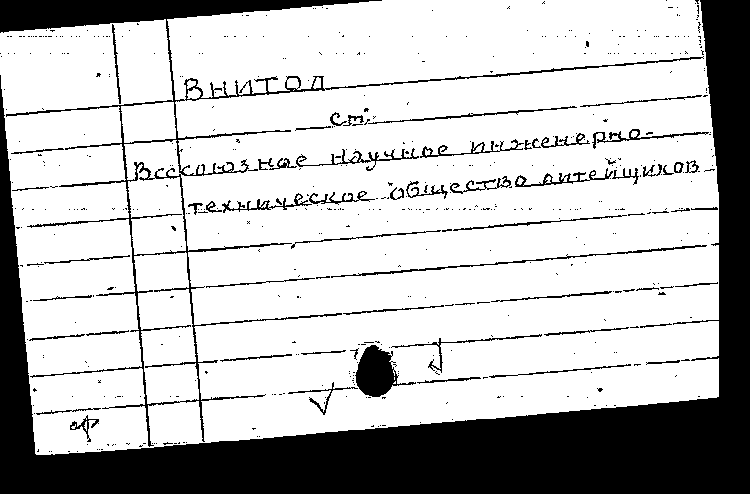 ВНИТОЛ
ст:
Всесоюзное научное инженерно-
техническое общество литейщиков